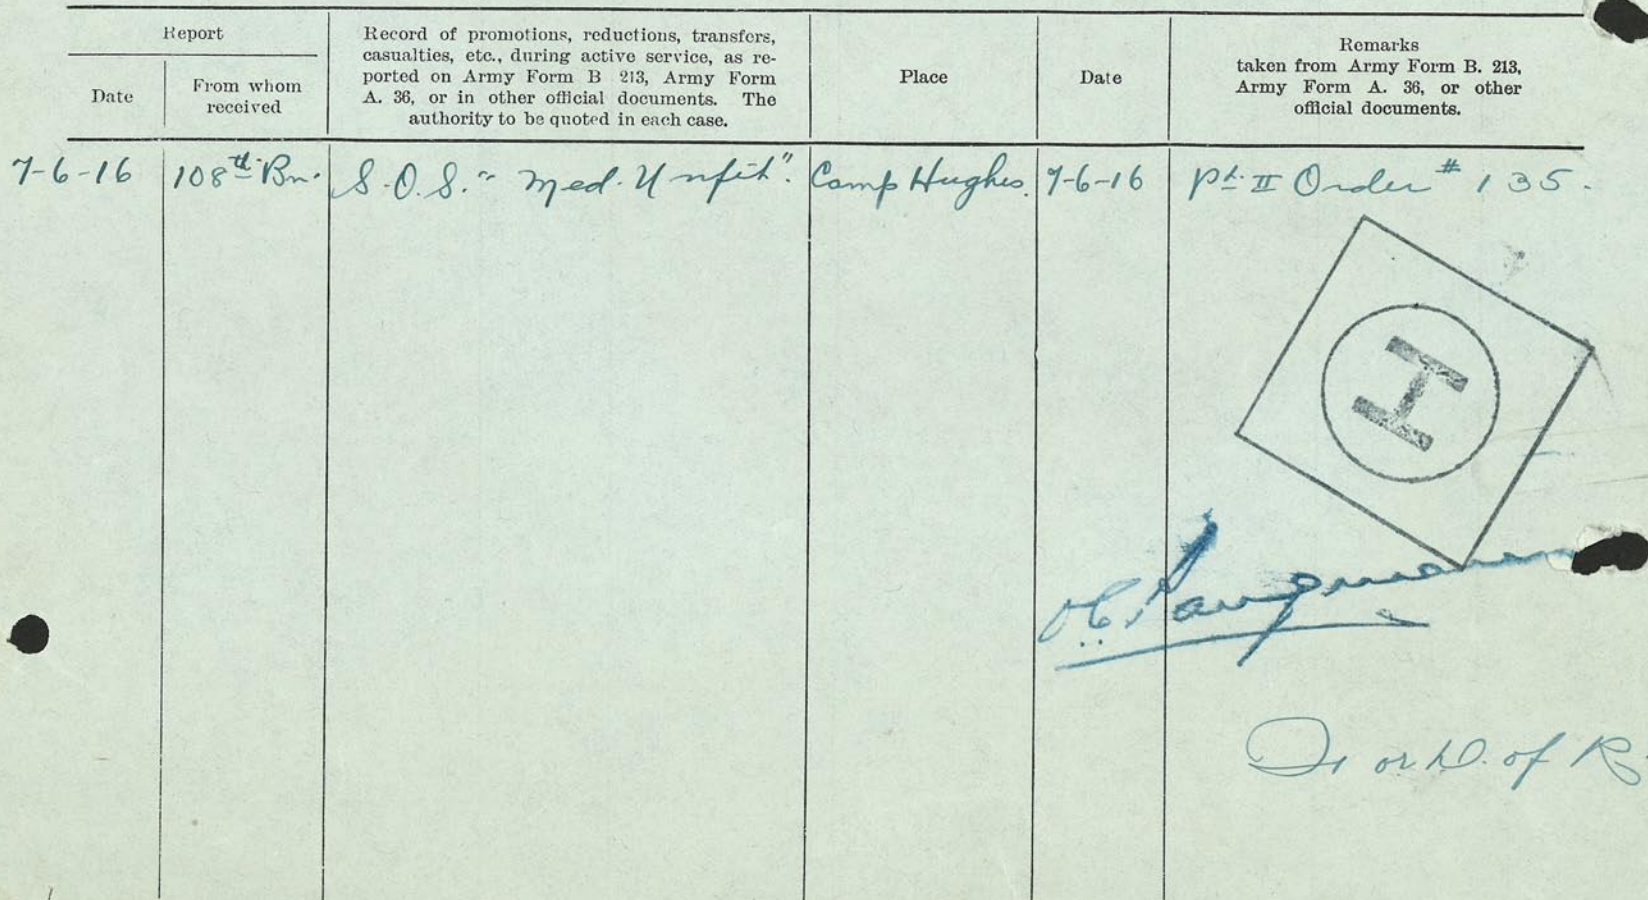 Report
Date
From whom
received
Record of promotions, reductions, transfers,
casualties, etc., during active service, as re-
ported on Army Form B 213, Army Form
A. 36, or in other official documents. The
authority to be quoted in each case.
Place
Date
Remarks
taken from Army Form B. 213,
Army Form A. 36, or other
official documents.
7-6-16 108th Bn. S.O.S. "Med. Unfit". Camp Hughes. 7-6-16 Pt. II Order # 135.
H
for D. of R.